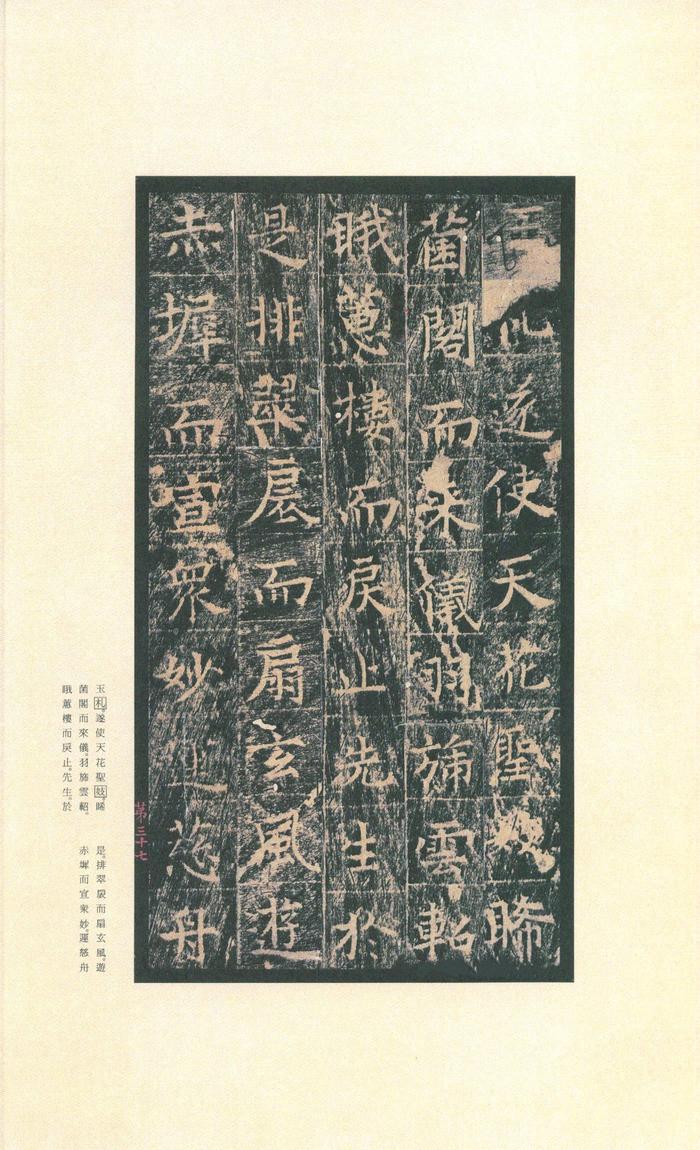 玉札遂使天花聖妓睎
菌閣而来儀羽斾雲軺
睋蔥樓而戾止先生於
是排翠扆而扇玄風遊
赤墀而宣衆妙運慈舟
第三十七
玉札。遂使天花聖妓。睎
菌閣而來儀。羽斾雲軺。
睋蔥樓而戾止。先生。於
是。排翠扆而扇玄風。遊
赤墀而宣衆妙。運慈舟